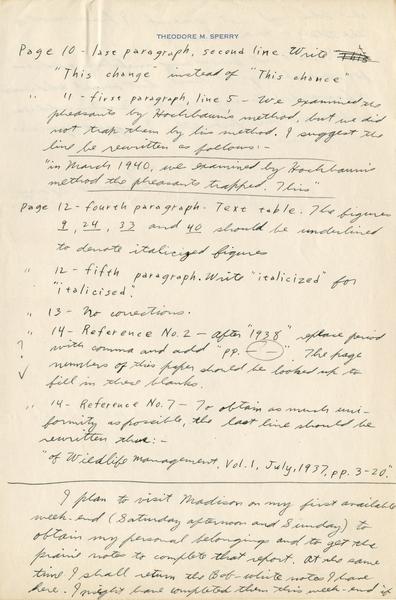 THEODORE M. SPERRY
Page 10 - last paragraph, second line. Write This
"This change" instead of "This chance"
" 11 - first paragraph, line 5 - We examined the
pheasants by Hochbaum's method, but we did
not trap them by his method. I suggest the
line be rewritten as follows:-
"in March 1940, we examined by Hochbaum's
method the pheasants trapped. This"
Page 12 - fourth paragraph - Text table. The figures
9, 24, 37 and 40 should be underlined
to denote italicized figures
" 12 - fifth paragraph. Write "italicized" for
"italicised".
" 13 - No corrections.
" 14 - Reference No. 2 - After "1938" replace period
? with comma and add "pp. - ". The page
numbers of this paper should be looked up to
✓ fill in these blanks.
" 14 - Reference No. 7 - To obtain as much uni-
formity as possible, the last line should be
rewritten thus:-
"of Wildlife Management, Vol. 1, July, 1937, pp. 3-20."
I plan to visit Madison on my first available
week-end (Saturday afternoon and Sunday) to
obtain my personal belongings and to get the
prairie notes to complete that report. At the same
time I shall return the Bob-white notes I have
here. I might have completed them this week-end if